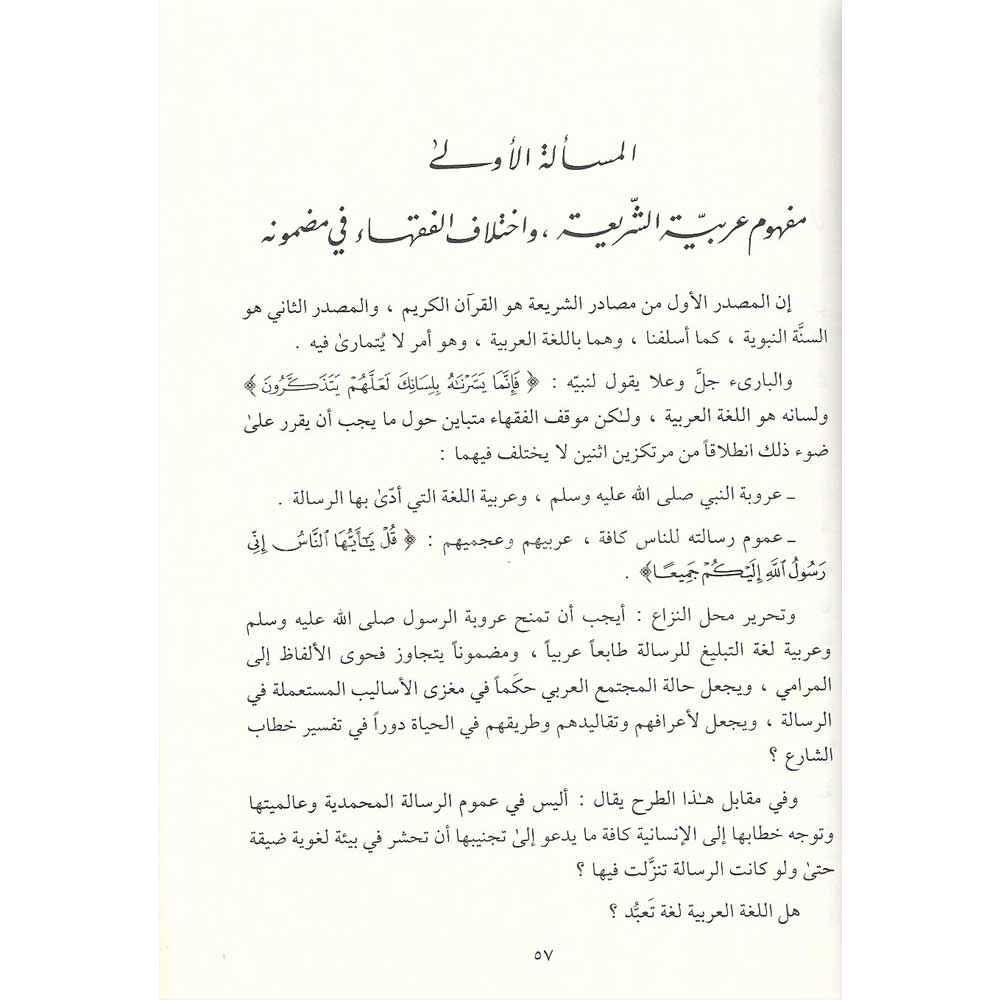 المسألة الأولىٰ
مفهوم عربيّة الشّريعة ، واختلاف الفقهاء في مضمونه
إن المصدر الأول من مصادر الشريعة هو القرآن الكريم ، والمصدر الثاني هو
السنَّة النبوية ، كما أسلفنا ، وهما باللغة العربية ، وهو أمر لا يُتمارىٰ فيه .
والبارىء جلَّ وعلا يقول لنبيّه : ﴿ فَإِنَّمَا يَسَّرْنَٰهُ بِلِسَانِكَ لَعَلَّهُمْ يَتَذَكَّرُونَ ﴾
ولسانه هو اللغة العربية ، ولـٰكن موقف الفقهاء متباين حول ما يجب أن يقرر علىٰ
ضوء ذلك انطلاقاً من مرتكزين اثنين لا يختلف فيهما :
ـ عروبة النبي صلى الله عليه وسلم ، وعربية اللغة التي أدّىٰ بها الرسالة .
ـ عموم رسالته للناس كافة ، عربيهم وعجميهم : ﴿ قُلْ يَٰٓأَيُّهَا ٱلنَّاسُ إِنِّي
رَسُولُ ٱللَّهِ إِلَيْكُمْ جَمِيعًا﴾ .
وتحرير محل النزاع : أيجب أن تمنح عروبة الرسول صلى الله عليه وسلم
وعربية لغة التبليغ للرسالة طابعاً عربياً ، ومضموناً يتجاوز فحوى الألفاظ إلى
المرامي ، ويجعل حالة المجتمع العربي حكَماً في مغزى الأساليب المستعملة في
الرسالة ، ويجعل لأعرافهم وتقاليدهم وطريقهم في الحياة دوراً في تفسير خطاب
الشارع ؟
وفي مقابل هـٰذا الطرح يقال : أليس في عموم الرسالة المحمدية وعالميتها
وتوجه خطابها إلى الإنسانية كافة ما يدعو إلىٰ تجنيبها أن تحشر في بيئة لغوية ضيقة
حتىٰ ولو كانت الرسالة تنزَّلت فيها ؟
هل اللغة العربية لغة تَعبُّد ؟
٥٧